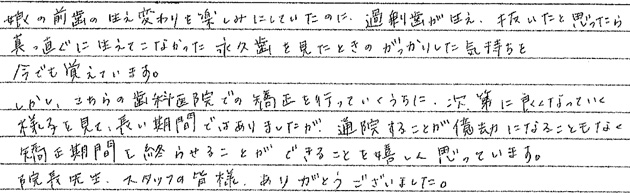 娘の前歯の生え変わりを楽しみにしていたのに、過剰歯が生え、抜いたと思ったら
真っ直ぐに生えてこなかった永久歯を見たときのがっかりした気持ちを
今でも覚えています。
しかし、こちらの歯科医院での矯正を行っていくうちに、次第に良くなっていく
様子を見て、長い期間ではありましたが、通院することが億劫になることもなく
矯正期間を終らせることができることを嬉しく思っています。
院長先生、スタッフの皆様、ありがとうございました。